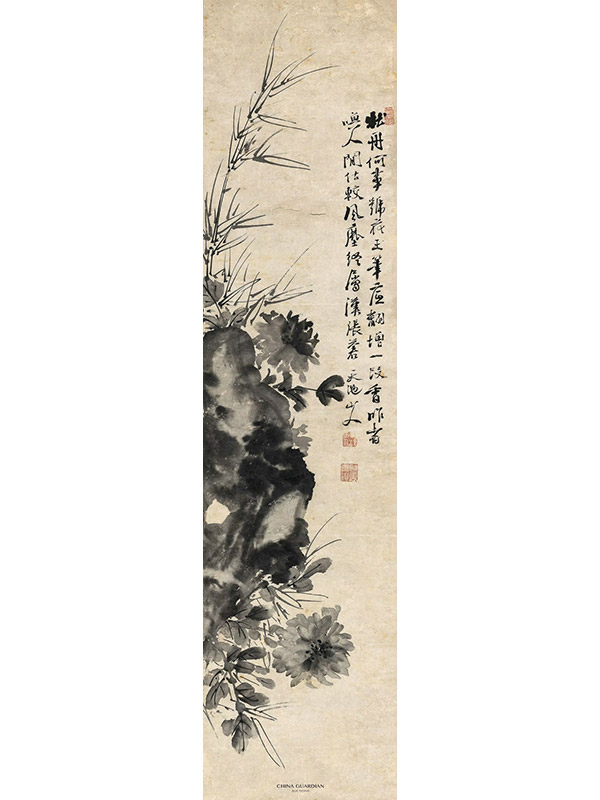 牡丹何事號花王筆底翻增一段香昨者
人閒估較風終屬漢張蒼 天池山人
CHINA GUARDIAN